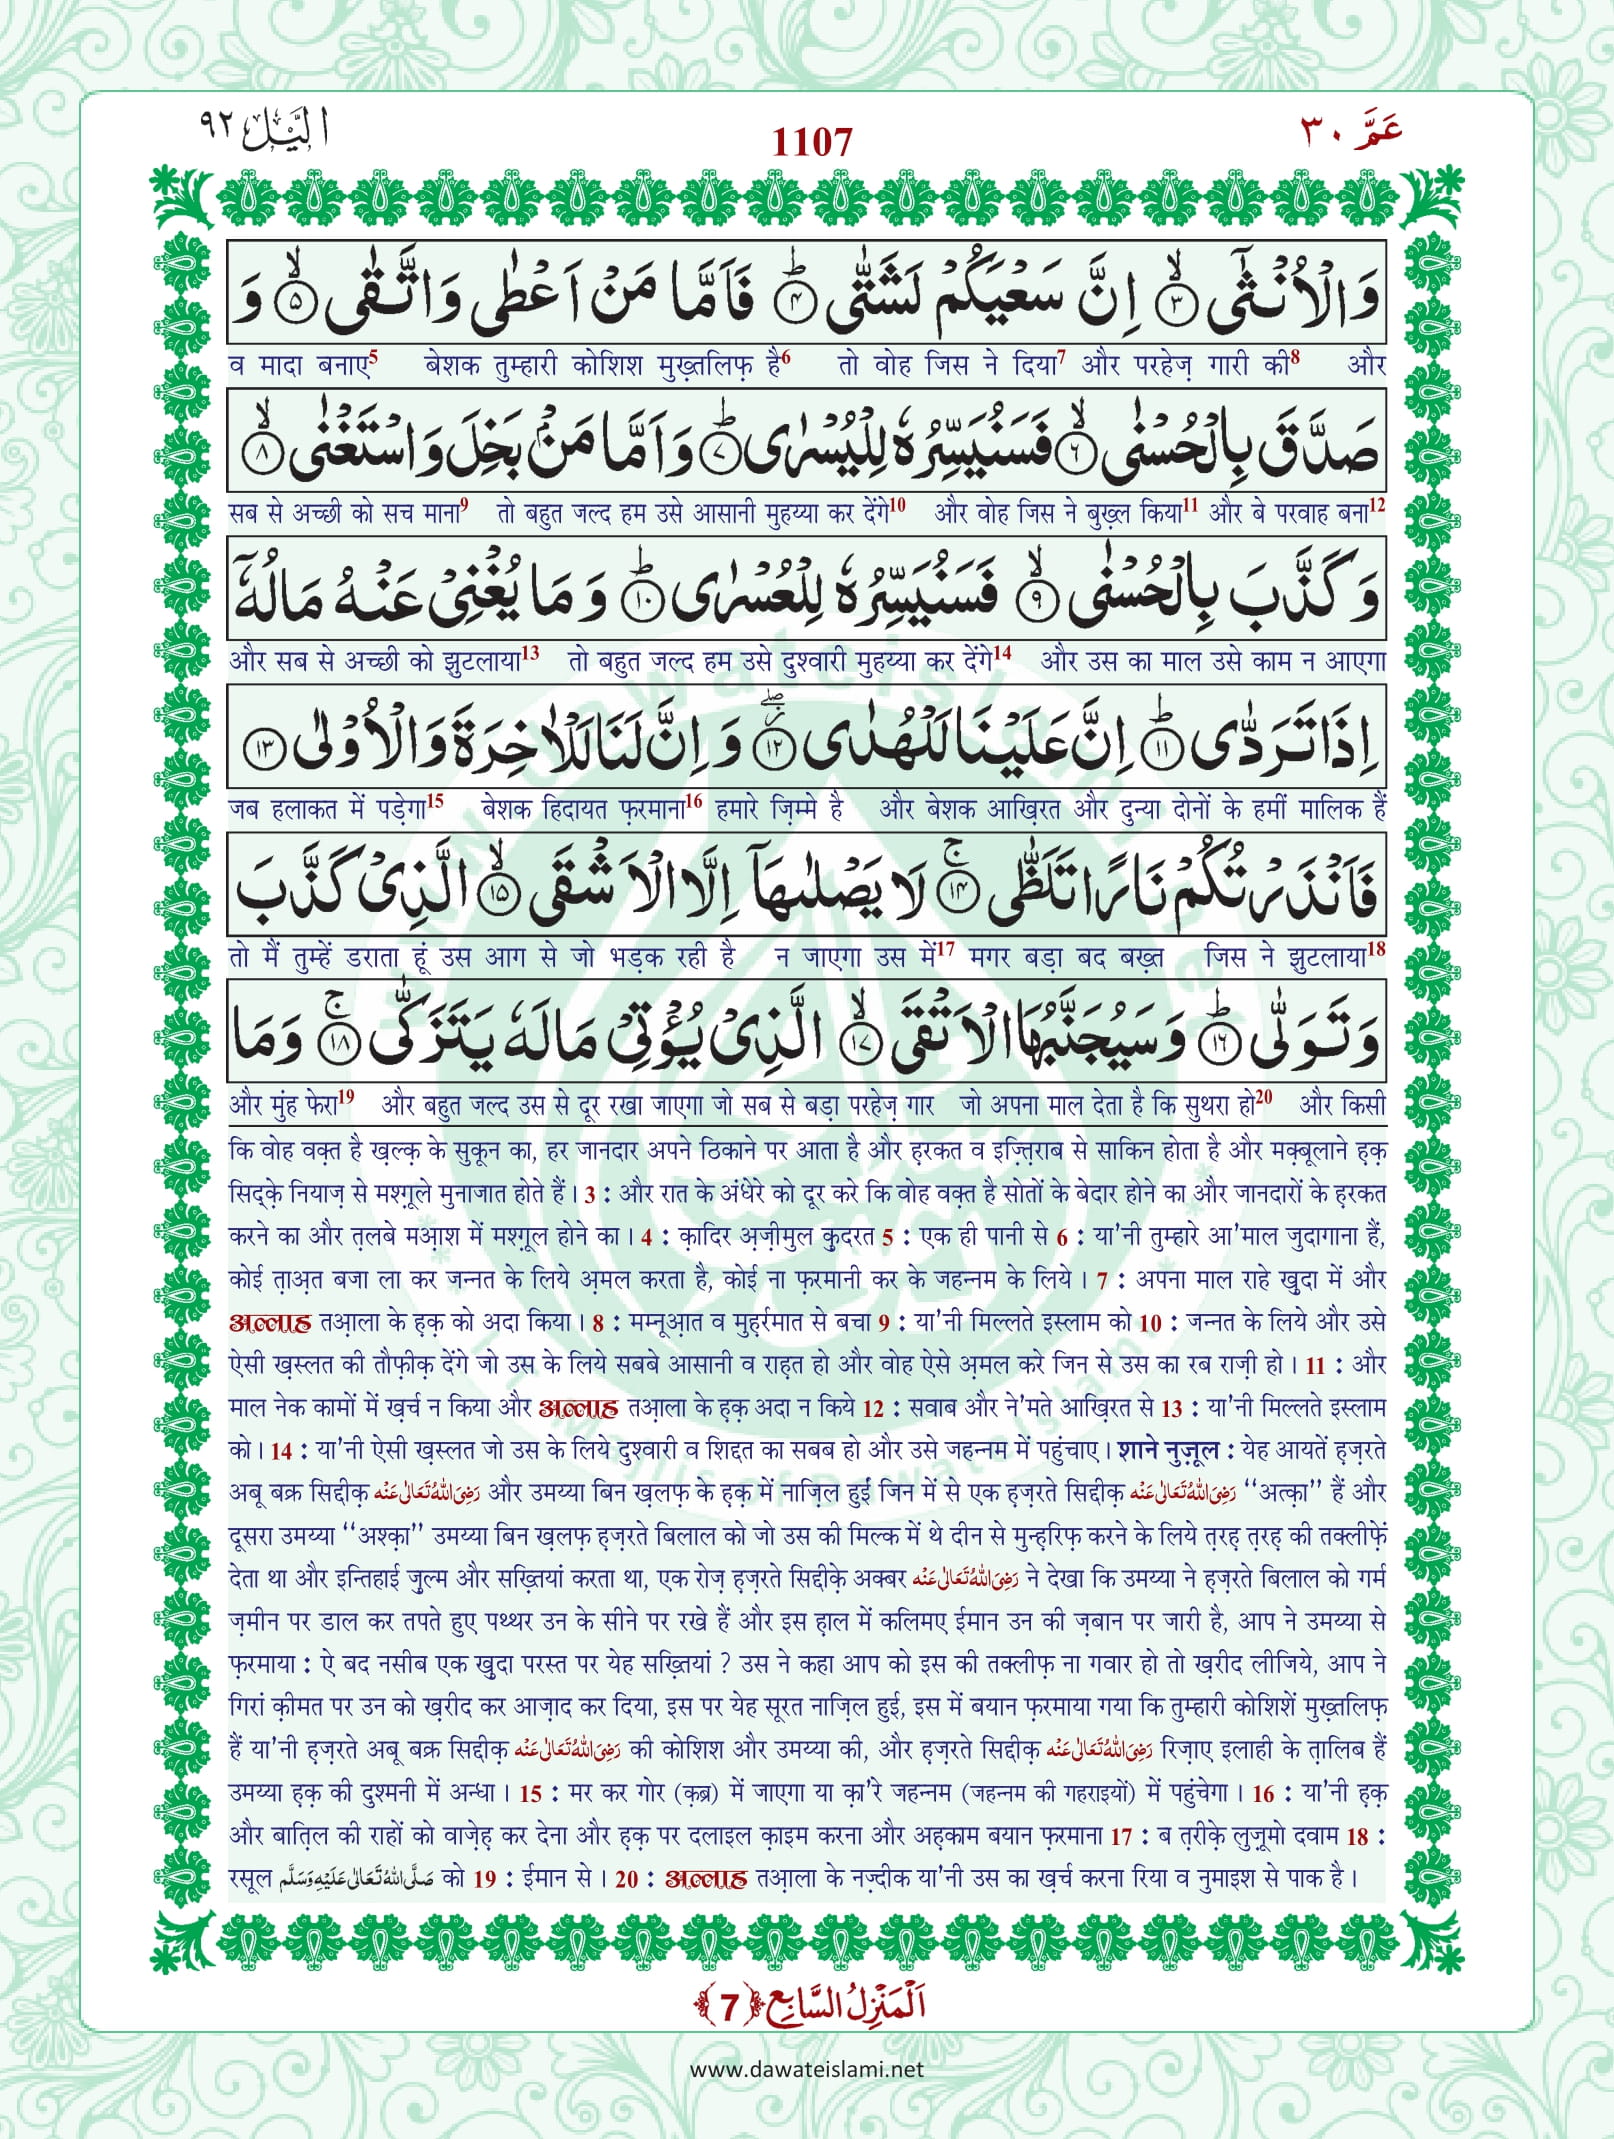 عَمَّ ٣٠
1107
الَّيْل ٩٢
وَالْاُنْثٰۤى ۙ﴿۳﴾ اِنَّ سَعْیَكُمْ لَشَتّٰى ؕ﴿۴﴾ فَاَمَّا مَنْ اَعْطٰى وَاتَّقٰى ۙ﴿۵﴾ وَ
व मादा बनाए5 बेशक तुम्हारी कोशिश मुख़्तलिफ़ है6 तो वोह जिस ने दिया7 और परहेज़ गारी की8 और
صَدَّقَ بِالْحُسْنٰى ۙ﴿۶﴾ فَسَنُیَسِّرُهٗ لِلْیُسْرٰى ؕ﴿۷﴾ وَاَمَّا مَنْۢ بَخِلَ وَاسْتَغْنٰى ۙ﴿۸﴾
सब से अच्छी को सच माना9 तो बहुत जल्द हम उसे आसानी मुहय्या कर देंगे10 और वोह जिस ने बुख़्ल किया11 और बे परवाह बना12
وَ كَذَّبَ بِالْحُسْنٰى ۙ﴿۹﴾ فَسَنُیَسِّرُهٗ لِلْعُسْرٰى ؕ﴿۱۰﴾ وَ مَا یُغْنِیْ عَنْهُ مَالُهٗۤ
और सब से अच्छी को झुटलाया13 तो बहुत जल्द हम उसे दुश्वारी मुहय्या कर देंगे14 और उस का माल उसे काम न आएगा
اِذَا تَرَدّٰى ؕ﴿۱۱﴾ اِنَّ عَلَیْنَا لَلْهُدٰى ۖ﴿۱۲﴾ وَ اِنَّ لَنَا لَلْاٰخِرَةَ وَالْاُوْلٰى ﴿۱۳﴾
जब हलाकत में पड़ेगा15 बेशक हिदायत फ़रमाना16 हमारे ज़िम्मे है और बेशक आख़िरत और दुन्या दोनों के हमीं मालिक हैं
فَاَنْذَرْتُكُمْ نَارًا تَلَظّٰى ۚ﴿۱۴﴾ لَا یَصْلٰىهَاۤ اِلَّا الْاَشْقَى ۙ﴿۱۵﴾ الَّذِیْ كَذَّبَ
तो मैं तुम्हें डराता हूं उस आग से जो भड़क रही है न जाएगा उस में17 मगर बड़ा बद बख़्त जिस ने झुटलाया18
وَ تَوَلّٰى ؕ﴿۱۶﴾ وَ سَیُجَنَّبُهَا الْاَتْقَى ۙ﴿۱۷﴾ الَّذِیْ یُؤْتِیْ مَالَهٗ یَتَزَكّٰى ۚ﴿۱۸﴾ وَمَا
और मुंह फेरा19 और बहुत जल्द उस से दूर रखा जाएगा जो सब से बड़ा परहेज़ गार जो अपना माल देता है कि सुथरा हो20 और किसी
कि वोह वक़्त है ख़ल्क़ के सुकून का, हर जानदार अपने ठिकाने पर आता है और ह़रकत व इज़्तिराब से साकिन होता है और मक़्बूलाने ह़क़
सिद्क़े नियाज़ से मश्ग़ूले मुनाजात होते हैं। 3 : और रात के अंधेरे को दूर करे कि वोह वक़्त है सोतों के बेदार होने का और जानदारों के ह़रकत
करने का और त़लबे मआ़श में मश्ग़ूल होने का। 4 : क़ादिर अ़ज़ीमुल क़ुदरत 5 : एक ही पानी से 6 : या'नी तुम्हारे आ'माल जुदागाना हैं,
कोई त़ाअ़त बजा ला कर जन्नत के लिये अ़मल करता है, कोई ना फ़रमानी कर के जहन्नम के लिये। 7 : अपना माल राहे ख़ुदा में और
अल्लाह तआ़ला के ह़क़ को अदा किया। 8 : मम्नूआ़त व मुह़र्रमात से बचा 9 : या'नी मिल्लते इस्लाम को 10 : जन्नत के लिये और उसे
ऐसी ख़स्लत की तौफ़ीक़ देंगे जो उस के लिये सबबे आसानी व राह़त हो और वोह ऐसे अ़मल करे जिन से उस का रब राज़ी हो। 11 : और
माल नेक कामों में ख़र्च न किया और अल्लाह तआ़ला के ह़क़ अदा न किये 12 : सवाब और ने'मते आख़िरत से 13 : या'नी मिल्लते इस्लाम
को। 14 : या'नी ऐसी ख़स्लत जो उस के लिये दुश्वारी व शिद्दत का सबब हो और उसे जहन्नम में पहुंचाए। शाने नुज़ूल : येह आयतें ह़ज़रते
अबू बक्र सिद्दीक़ رَضِیَ اللّٰہُ تَعَالٰی عَنْہ और उमय्या बिन ख़लफ़ के ह़क़ में नाज़िल हुईं जिन में से एक ह़ज़रते सिद्दीक़ رَضِیَ اللّٰہُ تَعَالٰی عَنْہ ‘‘अत्क़ा’’ हैं और
दूसरा उमय्या ‘‘अश्क़ा’’ उमय्या बिन ख़लफ़ ह़ज़रते बिलाल को जो उस की मिल्क में थे दीन से मुन्ह़रिफ़ करने के लिये त़रह़ त़रह़ की तक्लीफ़ें
देता था और इन्तिहाई ज़ुल्म और सख़्तियां करता था, एक रोज़ ह़ज़रते सिद्दीक़े अक्बर رَضِیَ اللّٰہُ تَعَالٰی عَنْہ ने देखा कि उमय्या ने ह़ज़रते बिलाल को गर्म
ज़मीन पर डाल कर तपते हुए पथ्थर उन के सीने पर रखे हैं और इस ह़ाल में कलिमए ईमान उन की ज़बान पर जारी है, आप ने उमय्या से
फ़रमाया : ऐ बद नसीब एक ख़ुदा परस्त पर येह सख़्तियां ? उस ने कहा आप को इस की तक्लीफ़ ना गवार हो तो ख़रीद लीजिये, आप ने
गिरां क़ीमत पर उन को ख़रीद कर आज़ाद कर दिया, इस पर येह सूरत नाज़िल हुई, इस में बयान फ़रमाया गया कि तुम्हारी कोशिशें मुख़्तलिफ़
हैं या'नी ह़ज़रते अबू बक्र सिद्दीक़ رَضِیَ اللّٰہُ تَعَالٰی عَنْہ की कोशिश और उमय्या की, और ह़ज़रते सिद्दीक़ رَضِیَ اللّٰہُ تَعَالٰی عَنْہ रिज़ाए इलाही के त़ालिब हैं
उमय्या ह़क़ की दुश्मनी में अन्धा। 15 : मर कर गोर (क़ब्र) में जाएगा या क़ा'रे जहन्नम (जहन्नम की गहराइयों) में पहुंचेगा। 16 : या'नी ह़क़
और बात़िल की राहों को वाज़ेह़ कर देना और ह़क़ पर दलाइल क़ाइम करना और अह़काम बयान फ़रमाना 17 : ब त़रीक़े लुज़ूमो दवाम 18 :
रसूल صَلَّی اللّٰہُ تَعَالٰی عَلَیْہِ وَسَلَّم को 19 : ईमान से। 20 : अल्लाह तआ़ला के नज़्दीक या'नी उस का ख़र्च करना रिया व नुमाइश से पाक है।
اَلْمَنْزِلُ السَّابِع ﴿7﴾
www.dawateislami.net